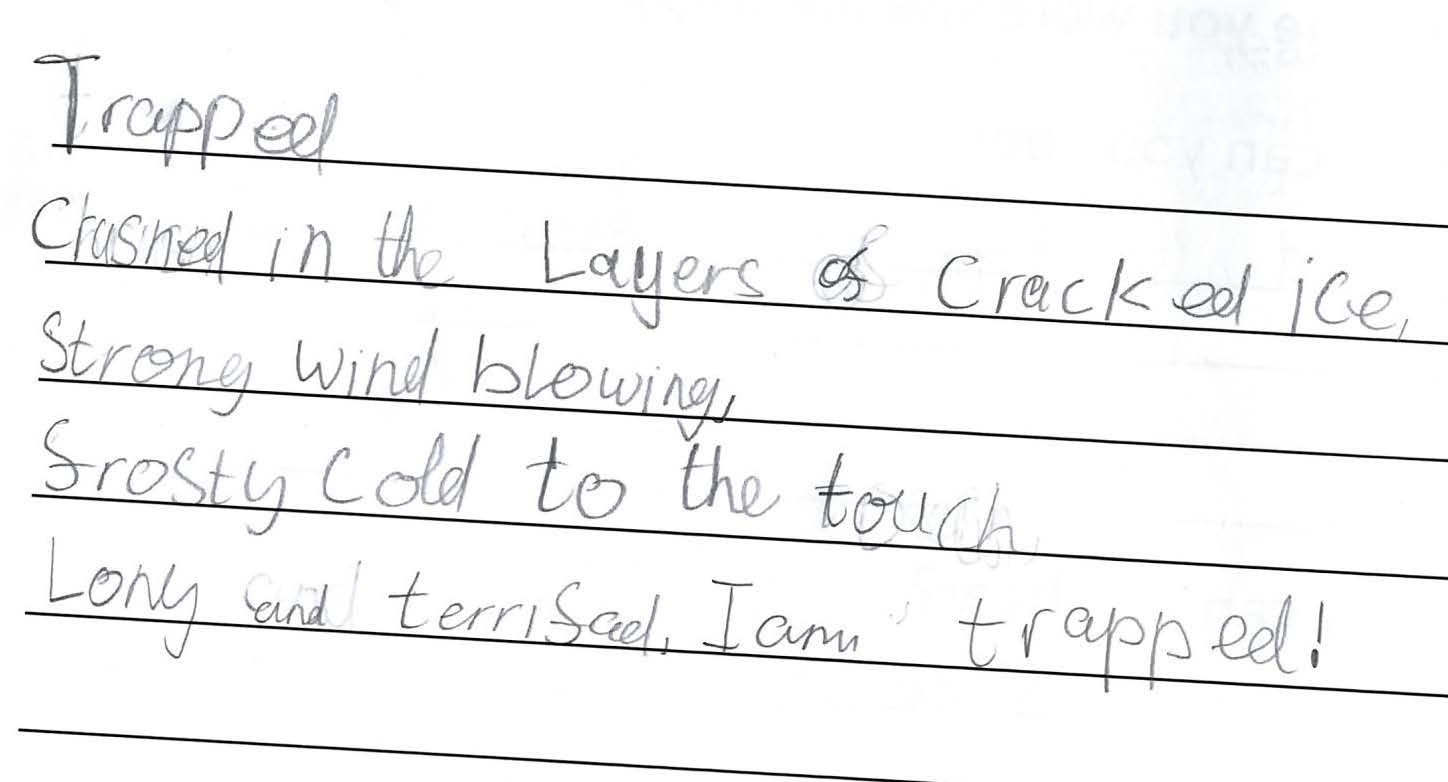 Trapped
Crushed in the Layers of Cracked ice,
Strong wind blowing,
frosty cold to the touch
Lony and terrifaed, I am trapped!